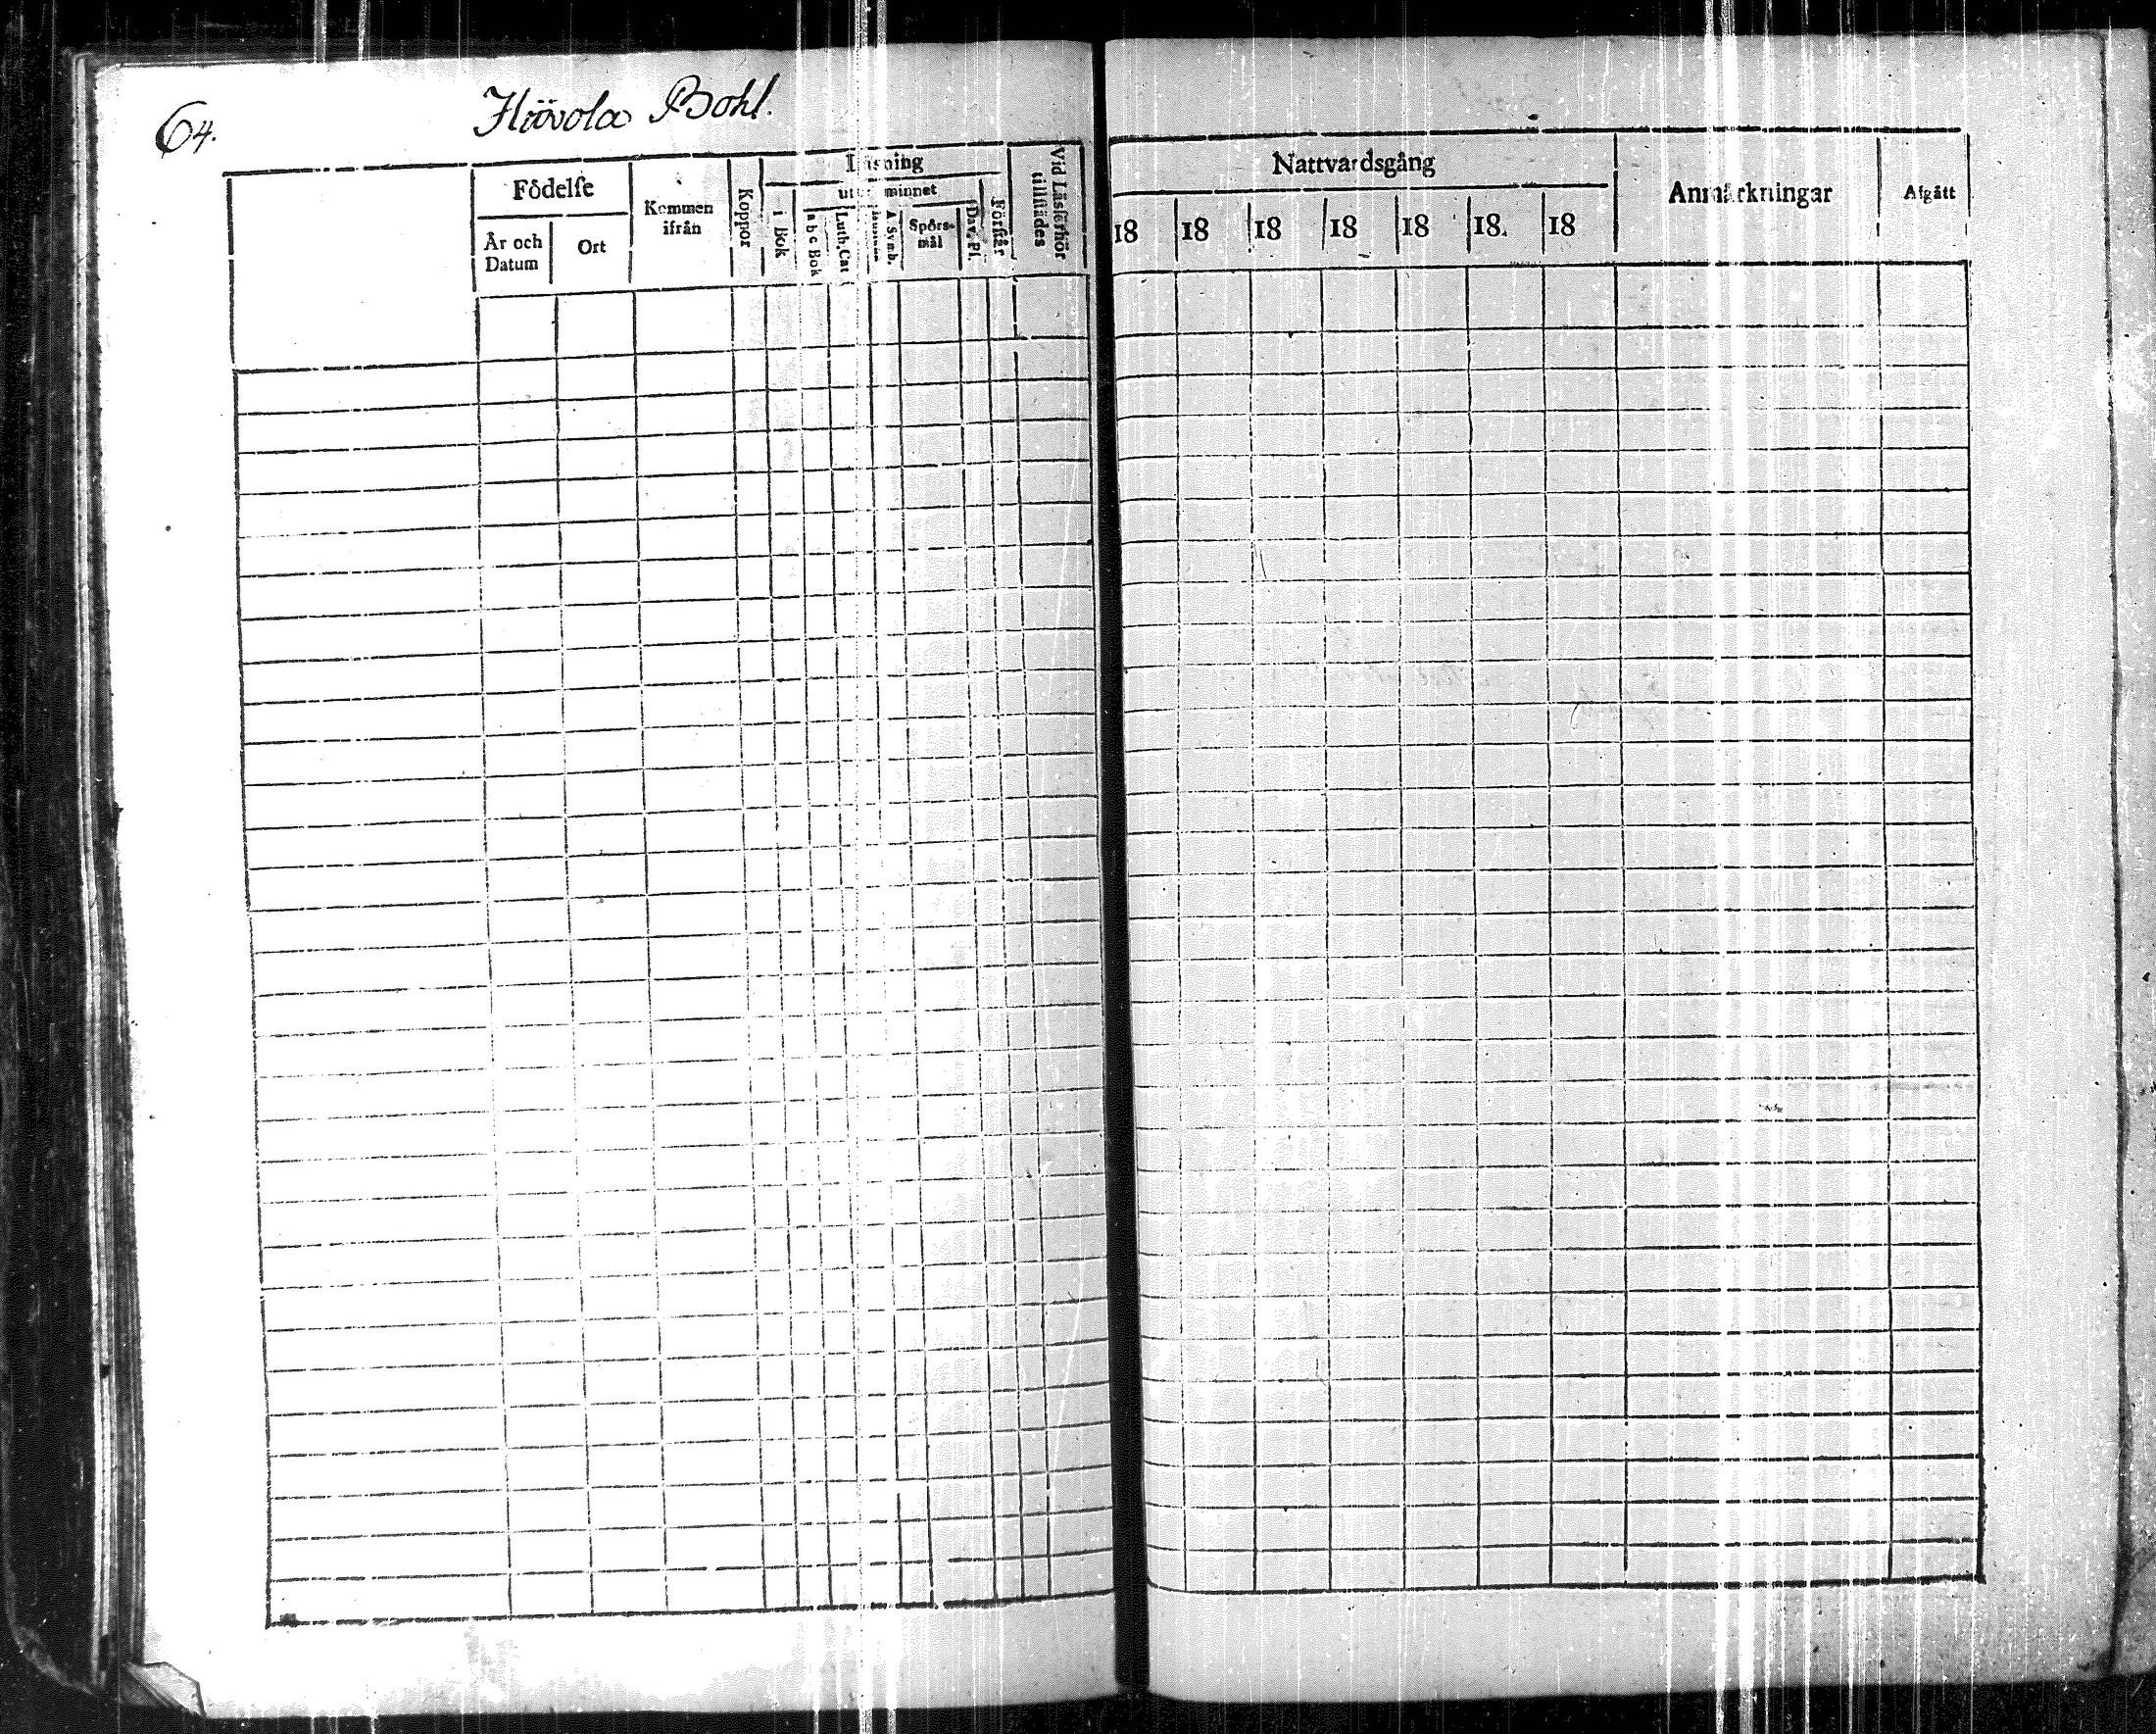 64.
Hiövola Bohl.
Födelse
År och Datum
Ort
Kommen ifrån
Koppor
Läsning
i Bok
utur minnet
a b c Bok
Luth. Cat
A Symb.
Spörs-mål
Dav. Ps.
Förstår
Vid Läsförhör tillstädes
Nattvardsgång
18 18 18 18 18 18. 18
Anmärkningar
Afgått